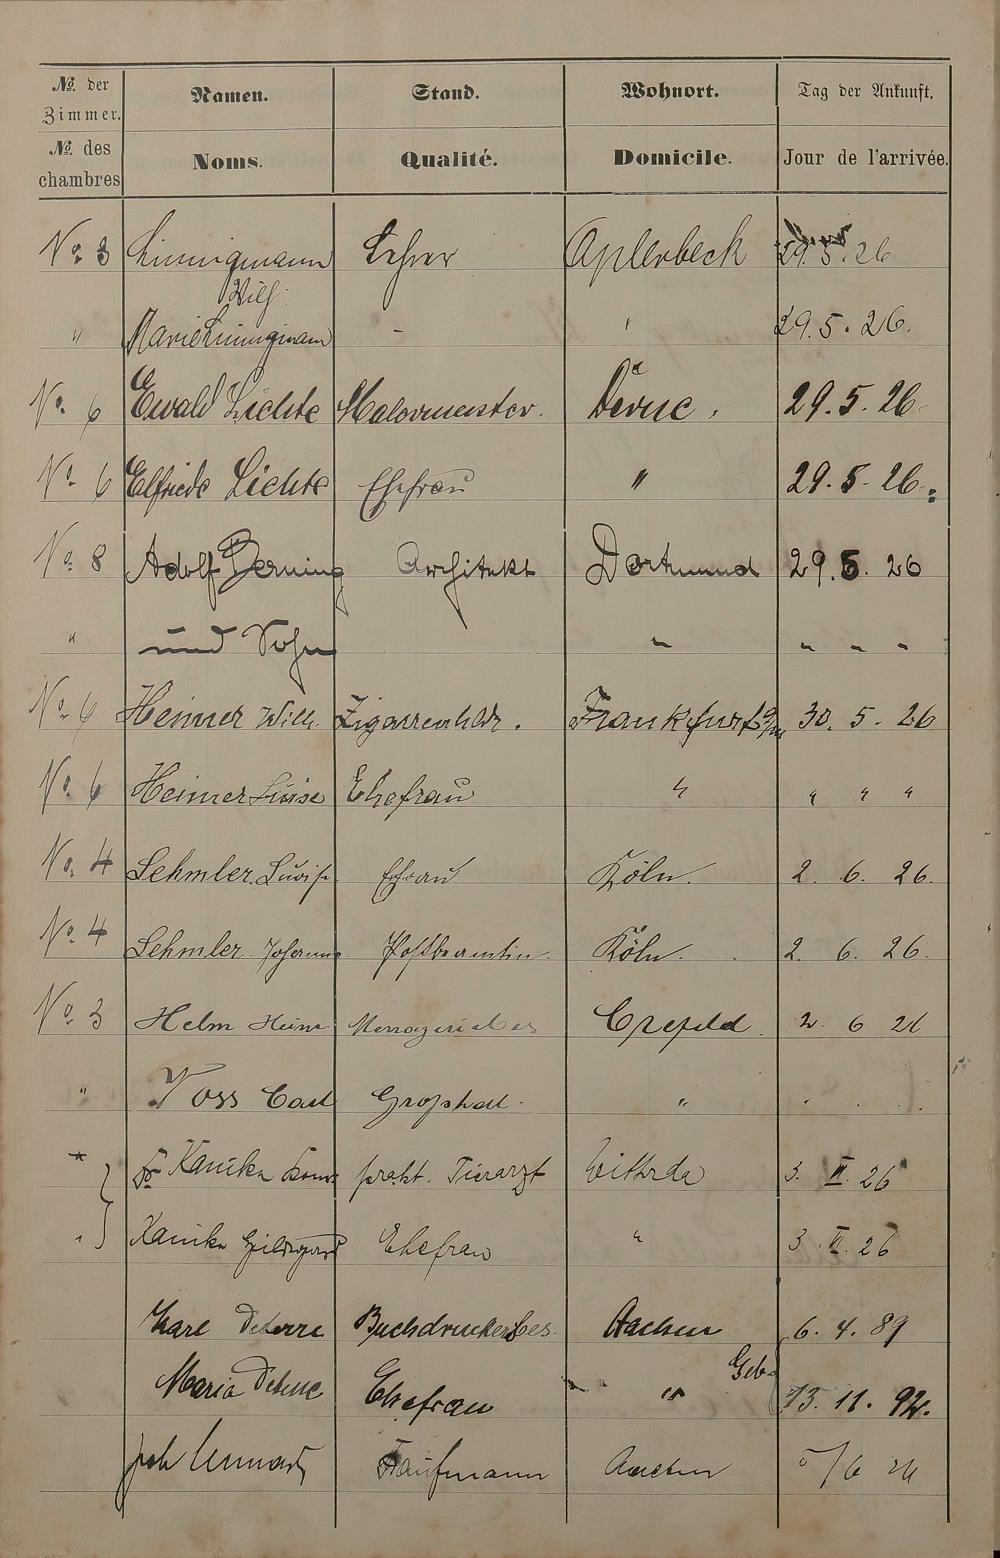 No. der Zimmer. Namen. Stand. Wohnort. Tag der Ankunft.
No. des chambres Noms. Qualité. Domicile. Jour de l'arrivée.
No. 3 Linnigmann Lehrer Aplerbeck 29.5.26
Wilh.
" Marie Linnigmann - " 29.5.26.
No. 6 Ewald Lichte Malermeister. Derne. 29.5.26
No. 6 Elfriede Lichte Ehefrau " 29.5.26.
No. 8 Adolf Berning Architekt Dortmund 29.5.26
" und Sohn " " " "
No. 6 Heimer Wilh. Zigarrenhdlr. Frankfurt a/M 30.5.26
No. 6 Heimer Luise Ehefrau " " " "
No. 4 Lehmler Luise Ehefrau Köln. 2. 6. 26.
No. 4 Lehmler Johanna Postbeamtin. Köln. 2. 6. 26.
No. 3 Helm Heinr Menageriebes Crefeld. 2. 6 26
" Voss Carl Großhdl. "
Dr Kaniken prakt. Tierarzt 3. VI. 26
" Kaniken Hildegard Ehefrau " 3. VI. 26
Karl Buchdruckereibes. Aachen 6. 4. 89
Geb.
Maria Ehefrau " 13. 11. 92.
Joh Lennartz Kaufmann Aachen 5/6 26